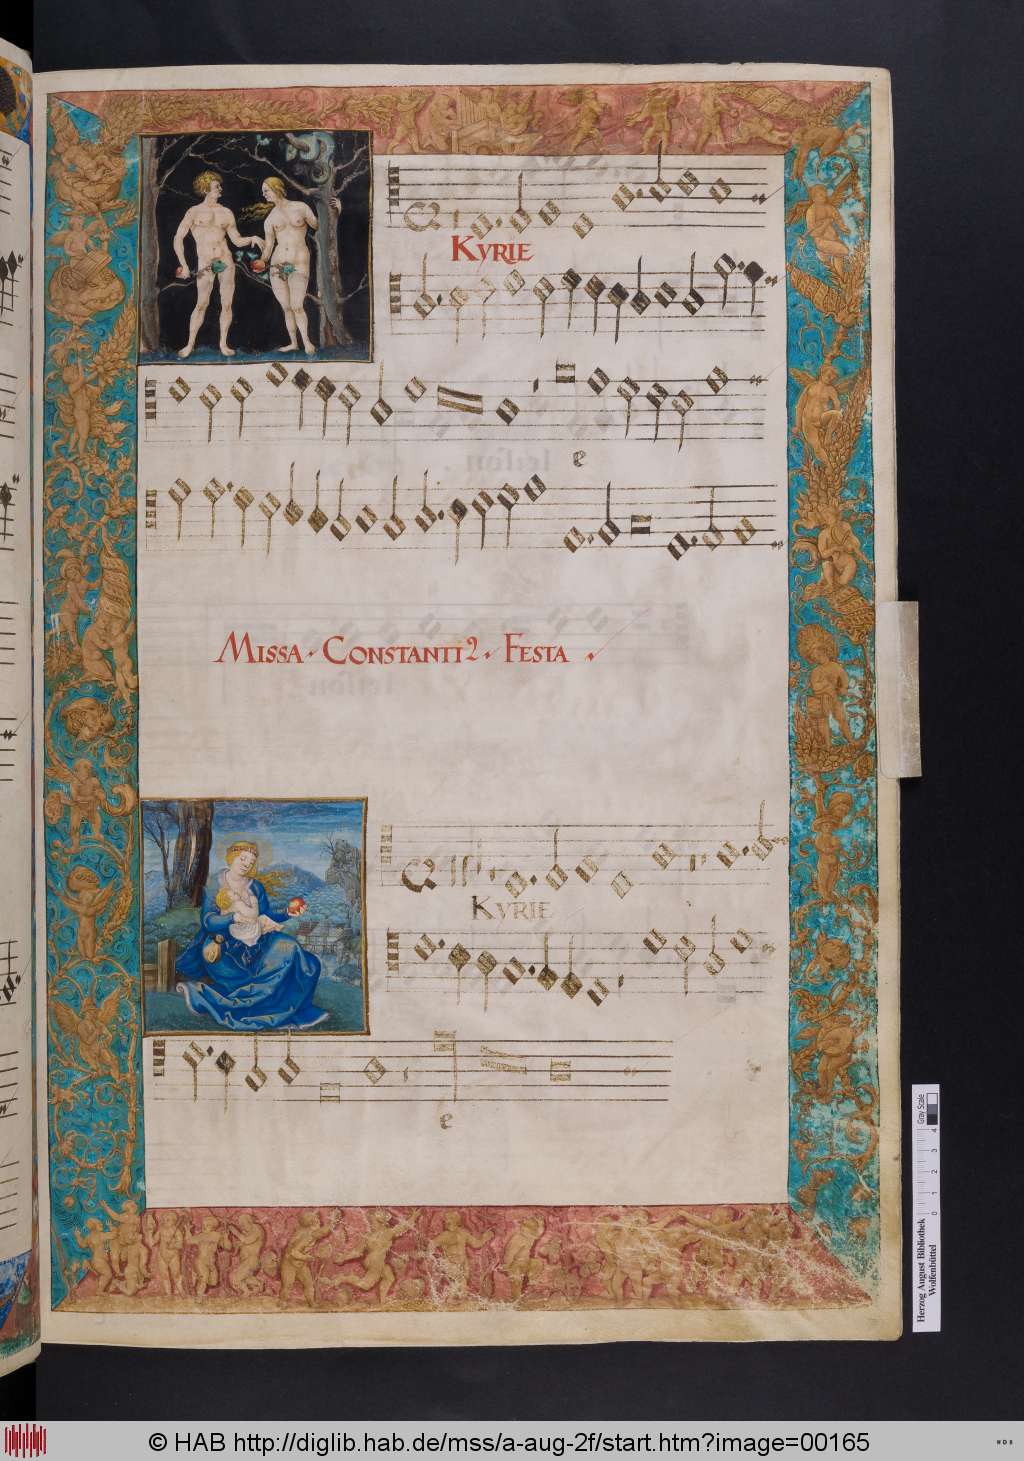 KYRIE
e
MISSA · CONSTANTI2 · FESTA ·
KYRIE
e
Gray Scale
0 1 2 3 4
Herzog August Bibliothek
Wolfenbüttel
© HAB http://diglib.hab.de/mss/a-aug-2f/start.htm?image=00165